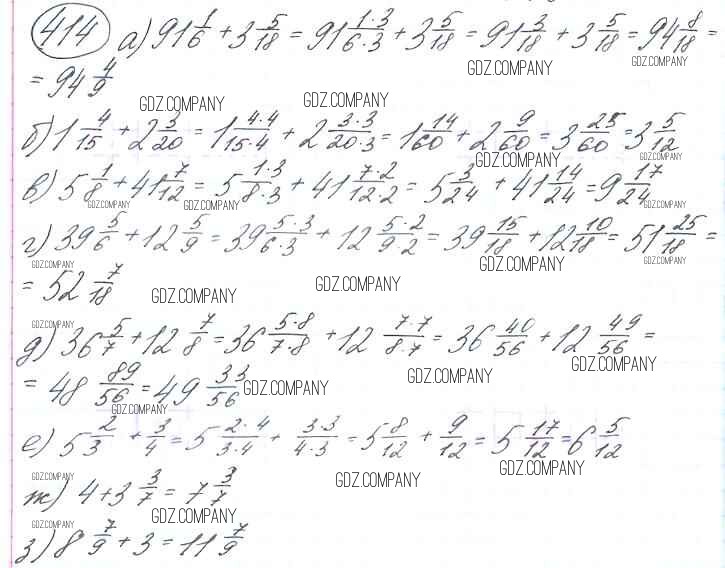 414 а) 91 1/6 + 3 5/18 = 91 1·3/6·3 + 3 5/18 = 91 3/18 + 3 5/18 = 94 8/18 =
GDZ.COMPANY
= 94 4/9
GDZ.COMPANY GDZ.COMPANY
б) 1 4/15 + 2 3/20 = 1 4·4/15·4 + 2 3·3/20·3 = 1 14/60 + 2 9/60 = 3 25/60 = 3 5/12
GDZ.COMPANY GDZ.COMPANY
в) 5 1/8 + 41 7/12 = 5 1·3/8·3 + 41 7·2/12·2 = 5 3/24 + 41 14/24 = 9 17/24
GDZ.COMPANY GDZ.COMPANY GDZ.COMPANY
г) 39 5/6 + 12 5/9 = 39 5·3/6·3 + 12 5·2/9·2 = 39 15/18 + 12 10/18 = 51 25/18 =
GDZ.COMPANY GDZ.COMPANY GDZ.COMPANY
= 52 7/18
GDZ.COMPANY GDZ.COMPANY
GDZ.COMPANY
д) 36 5/7 + 12 7/8 = 36 5·8/7·8 + 12 7·7/8·7 = 36 40/56 + 12 49/56 =
GDZ.COMPANY GDZ.COMPANY
= 48 89/56 = 49 33/56
GDZ.COMPANY
GDZ.COMPANY
е) 5 2/3 + 3/4 = 5 2·4/3·4 + 3·3/4·3 = 5 8/12 + 9/12 = 5 17/12 = 6 5/12
GDZ.COMPANY GDZ.COMPANY GDZ.COMPANY
ж) 4 + 3 3/7 = 7 3/7
GDZ.COMPANY GDZ.COMPANY
з) 8 7/9 + 3 = 11 7/9